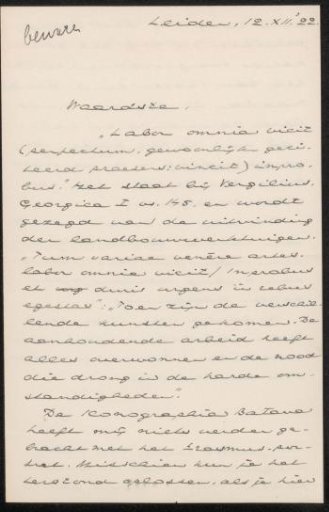 bewaren
Leiden, 12.XII.'22
Waardste,
"Labor omnia vicit
(perfectum, gewoonlijk geci-
teerd praesens: vincit) impro-
bus." Het staat bij Vergilius,
Georgica I vs. 145. en wordt
gezegd van de uitvinding
der landbouwwerktuigen.
"Tum variae venêre artes.
labor omnia vicit / Improbus
et duris urgens in rebus
egestas": "Toen zijn de verschil-
lende kunsten gekomen. De
aanhoudende arbeid heeft
alles overwonnen en de nood
die drong in de harde om-
standigheden."
De Iconographia Batava
heeft mij niets verder ge-
bracht met het Erasmus-por-
tret. Misschien kun je het
terstond oplossen, als je hier